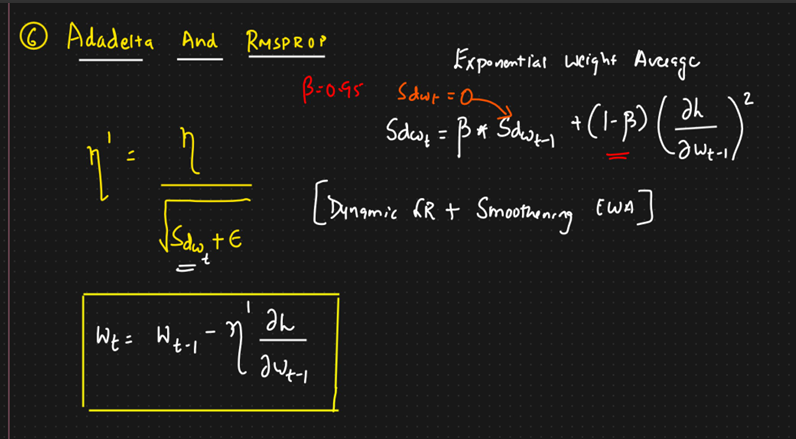 ⑥ Adadelta And RMSPROP
Exponential Weight Average
β=0.95 Sdwₜ = 0
Sdwₜ = β * Sdwₜ₋₁ + (1-β) (∂L/∂wₜ₋₁)²
η' = η / √(Sdwₜ + ε)
[Dynamic LR + Smoothening EWA]
Wₜ = Wₜ₋₁ - η' ∂L/∂wₜ₋₁